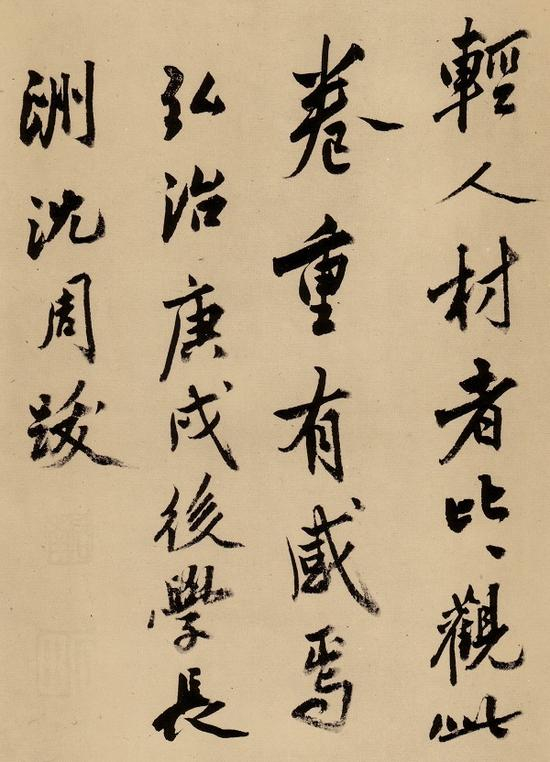 輕人材者比、觀此
卷重有感焉
弘治庚戌後學長
洲沈周跋